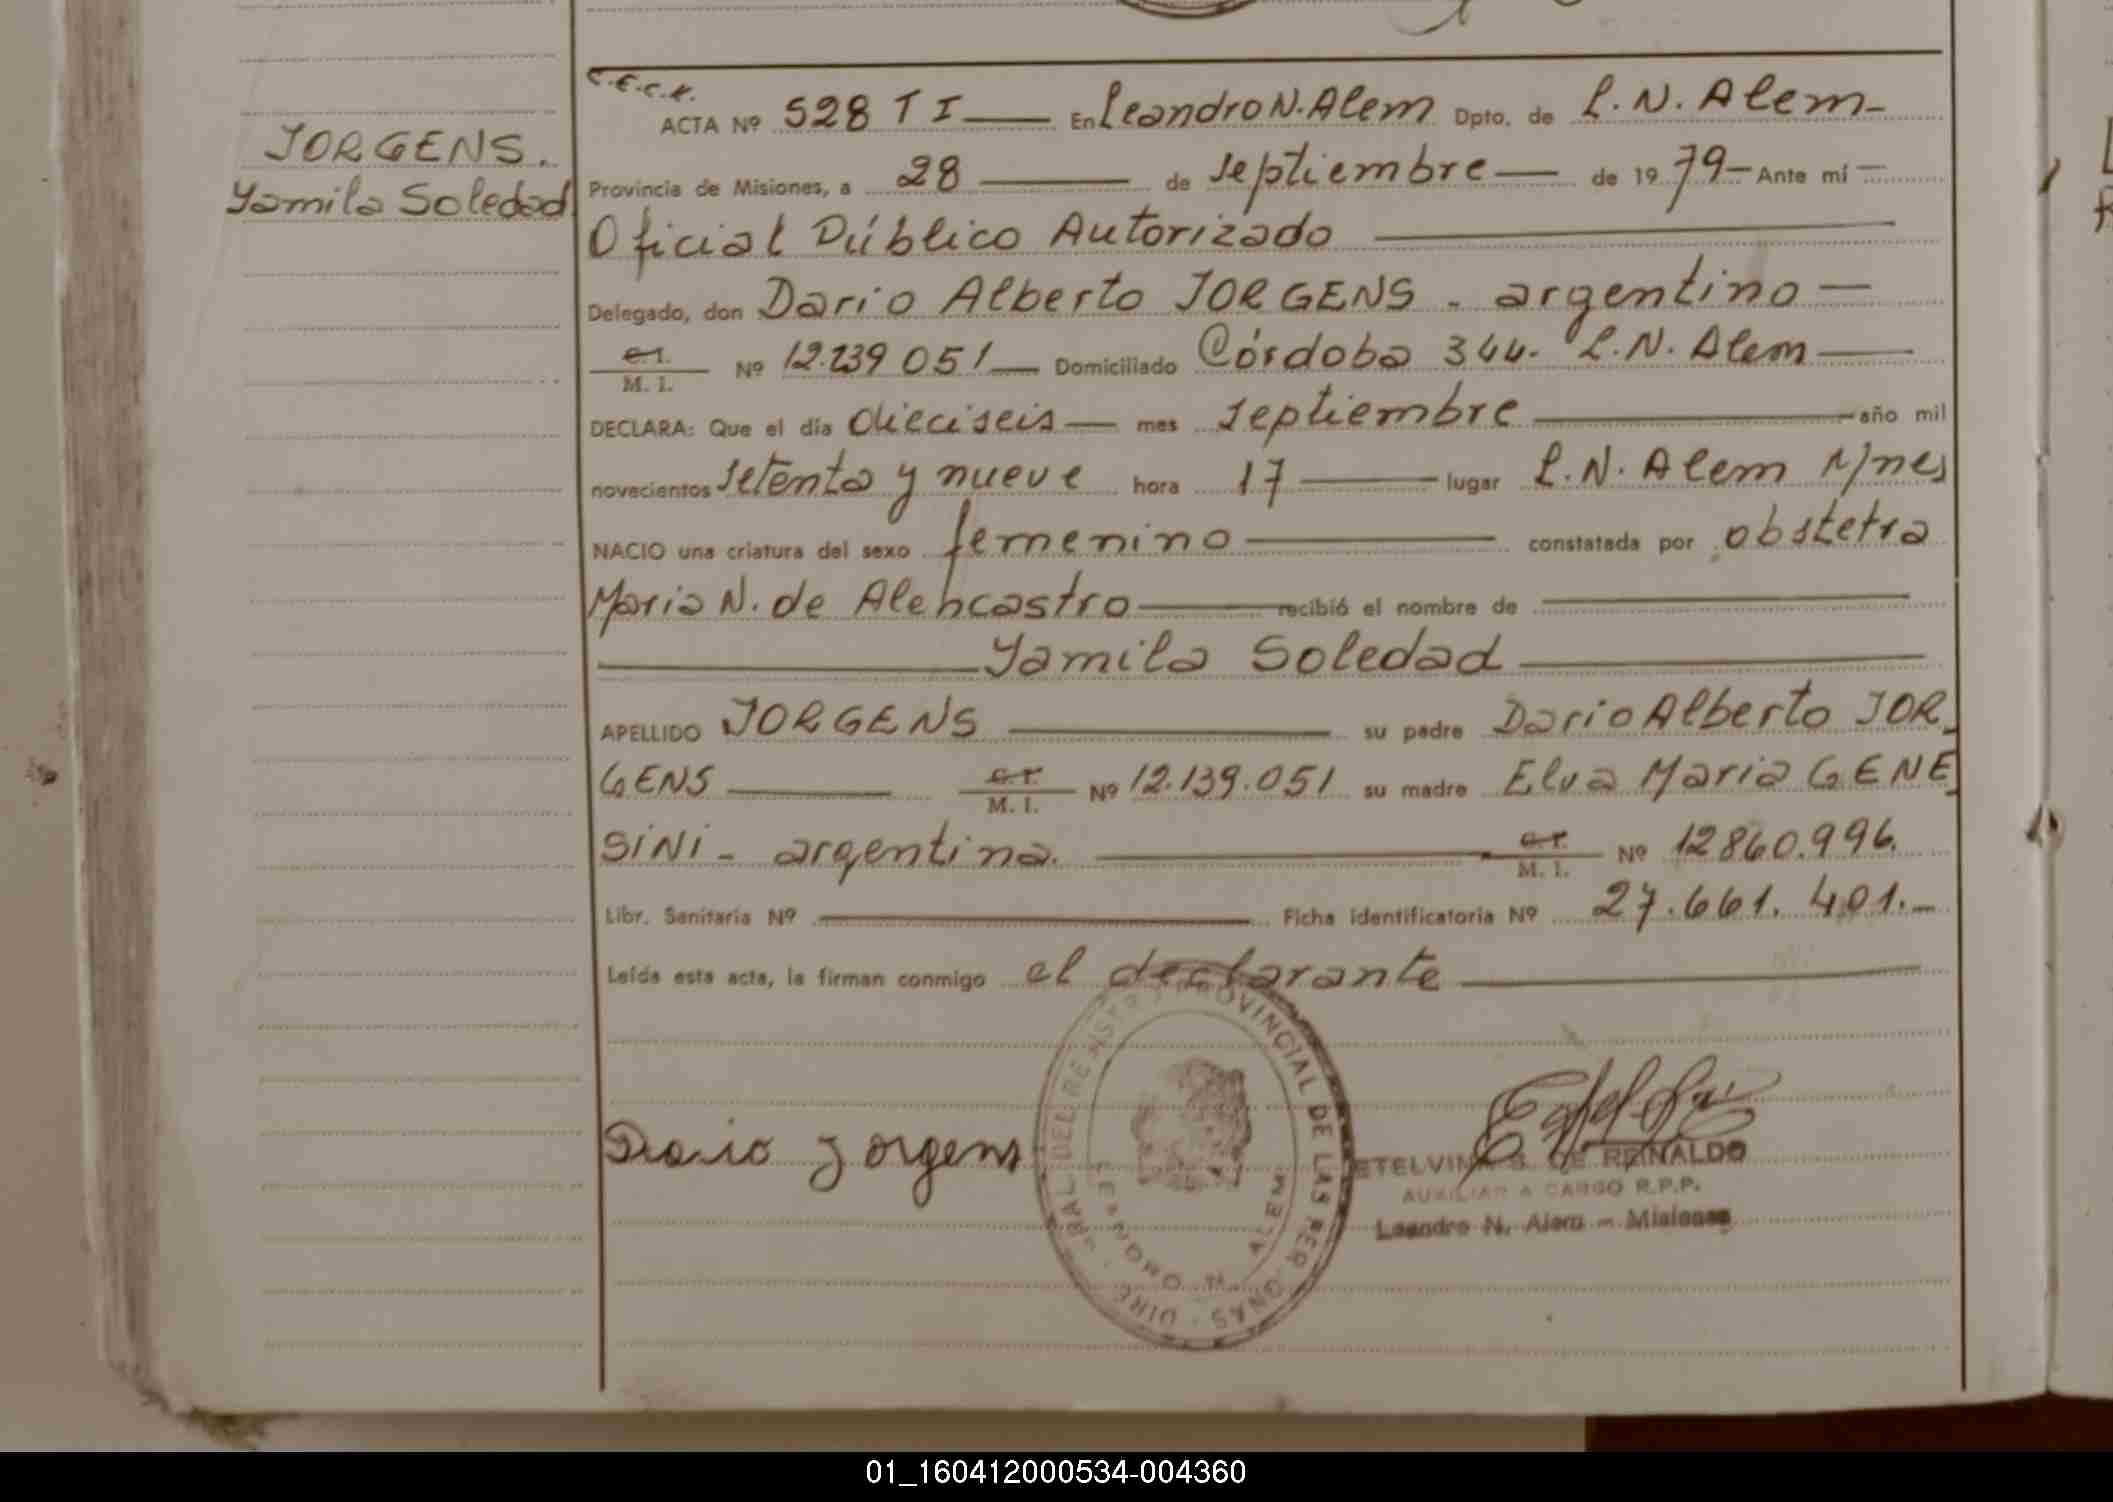 JORGENS.
Yamila Soledad
C.E.C.K.
ACTA Nº 528 T I — En Leandro N. Alem Dpto. de L. N. Alem-
Provincia de Misiones, a 28 — de septiembre — de 19 79 - Ante mí —
Oficial Público Autorizado
Delegado, don Dario Alberto JORGENS - argentino —
C.I. / M. I. Nº 12.239 051 — Domiciliado Córdoba 344. L. N. Alem —
DECLARA: Que el día dieciseis — mes septiembre — año mil
novecientos setenta y nueve hora 17 — lugar L. N. Alem M/nes
NACIO una criatura del sexo femenino — constatada por obstetra
Maria N. de Alencastro — recibió el nombre de —
Yamila Soledad
APELLIDO JORGENS — su padre Dario Alberto JOR-
GENS — C.I. / M. I. Nº 12.139.051 su madre Elva Maria GENE-
SINI - argentina. — C.I. / M. I. Nº 12860.996.
Libr. Sanitaria Nº — Ficha identificatoria Nº 27.661. 401.-
Leída esta acta, la firman conmigo el declarante —
Dario Jorgens
PROVINCIAL DE LAS PERSONAS
LEANDRO N. ALEM
ETELVINA S. DE REINALDO
AUXILIAR A CARGO R.P.P.
Leandro N. Alem - Misiones
01_160412000534-004360